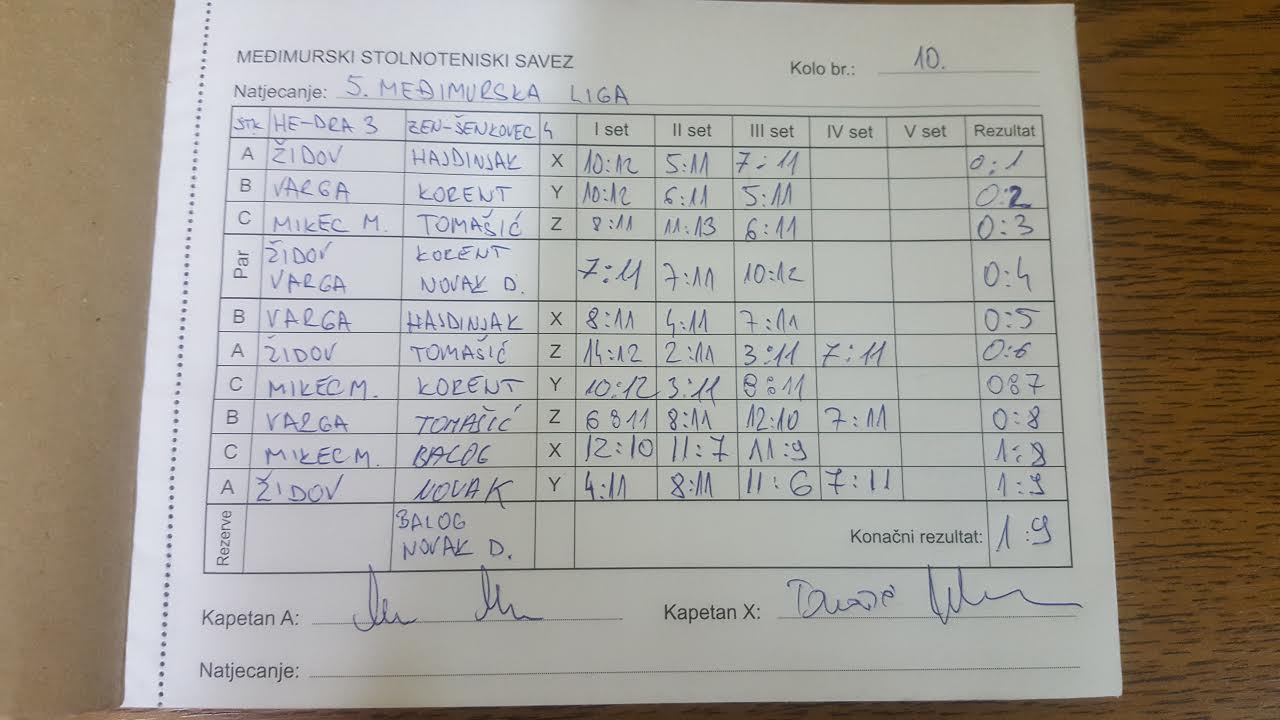 MEĐIMURSKI STOLNOTENISKI SAVEZ
Kolo br.: 10.
Natjecanje: 5. MEĐIMURSKA LIGA
STK HE-DRA 3 ZEN-ŠENKOVEC 4 I set II set III set IV set V set Rezultat
A ŽIDOV HAJDINJAK X 10:12 5:11 7:11 0:1
B VARGA KORENT Y 10:12 6:11 5:11 0:2
C MIKEC M. TOMAŠIĆ Z 8:11 11:13 6:11 0:3
Par ŽIDOV KORENT
VARGA NOVAK D. 7:11 7:11 10:12 0:4
B VARGA HAJDINJAK X 8:11 4:11 7:11 0:5
A ŽIDOV TOMAŠIĆ Z 14:12 2:11 3:11 7:11 0:6
C MIKEC M. KORENT Y 10:12 3:11 8:11 0:7
B VARGA TOMAŠIĆ Z 6:11 8:11 12:10 7:11 0:8
C MIKEC M. BALOG X 12:10 11:7 11:9 1:8
A ŽIDOV NOVAK Y 4:11 8:11 11:6 7:11 1:9
Rezerve BALOG
NOVAK D. Konačni rezultat: 1:9
Kapetan A: Kapetan X:
Natjecanje: